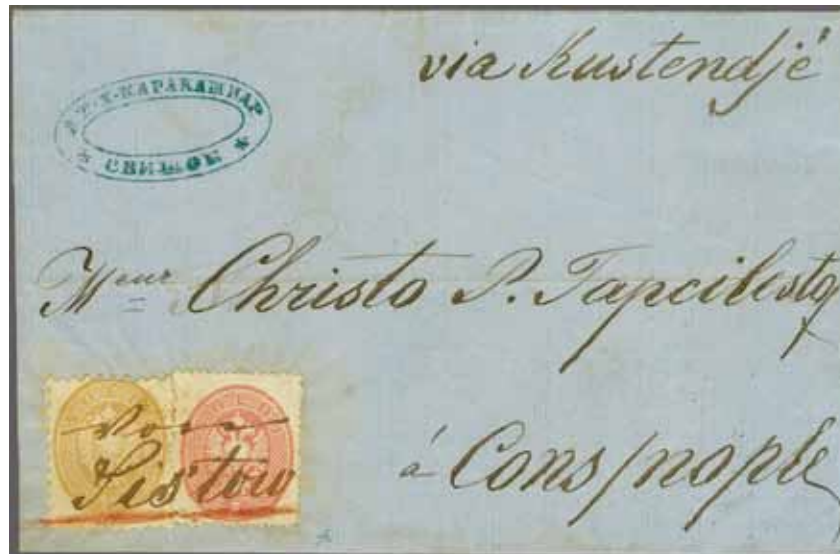 via Kustendjé
КАРАКАШИАР
* СВИЩОВ *
Mʳ Christo P. Tapcilesty
Von
Sistow
à Cons/nople